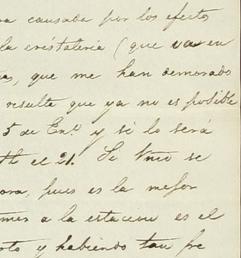 ra causaba por los efectos
la cristaleria (que va en
as, que me han demorado
resulta que ya no es posible
5 de En.º y si lo será
el 21. Se Vmo se
ora, pues es la mejor
a la estacion es el
oto y habiendo tan fre